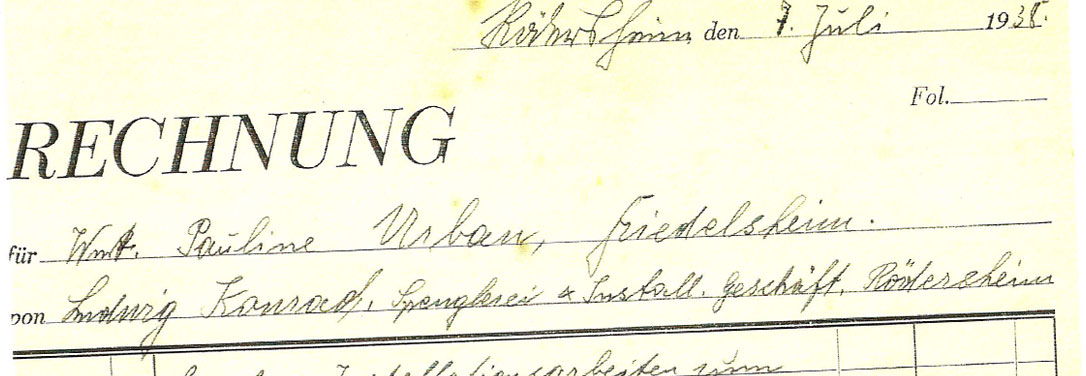 Rödersheim den 7. Juli 1938.
Fol.
RECHNUNG
für Wwe. Pauline Urban, Friedelsheim.
von Ludwig Konrad, Spenglerei & Install. Geschäft, Rödersheim
Installationsarbeiten zum